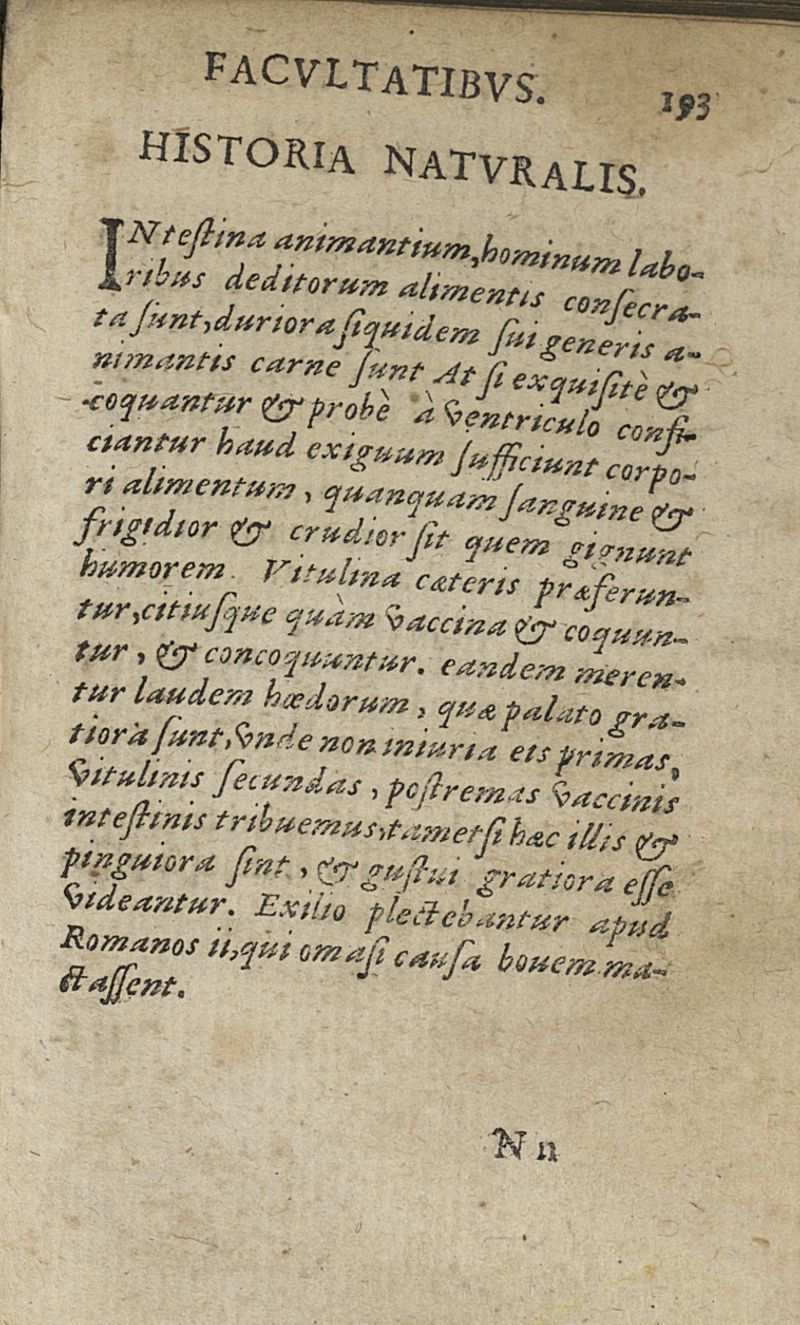 FACVLTATIBVS. 193
HISTORIA NATVRALIS.
INteſtina animantium, hominum labo-
ribus deditorum alimentis conſecra-
ta ſunt, duriora ſiquidem ſui generis a-
nimantis carne ſunt At ſi exquiſitè &
coquantur & probè à ventriculo confi-
ciantur haud exiguum ſufficiunt corpo-
ri alimentum, quanquam ſanguine &
frigidior & crudior ſit quem gignunt
humorem. Vitulina cæteris præferun-
tur, citiuſque quàm vaccina & coquun-
tur, & concoquuntur. eandem meren-
tur laudem hædorum, quæ palato gra-
tiora ſunt, vnde non iniuria eis primas,
vitulinis ſecundas, poſtremas vaccinis
inteſtinis tribuemus, tametſi hæc illis &
pinguiora ſint, & guſtui gratiora eſſe
videantur. Exilio plectebantur apud
Romanos ii, qui omaſi cauſa bouem ma-
ctaſſent.
N ii